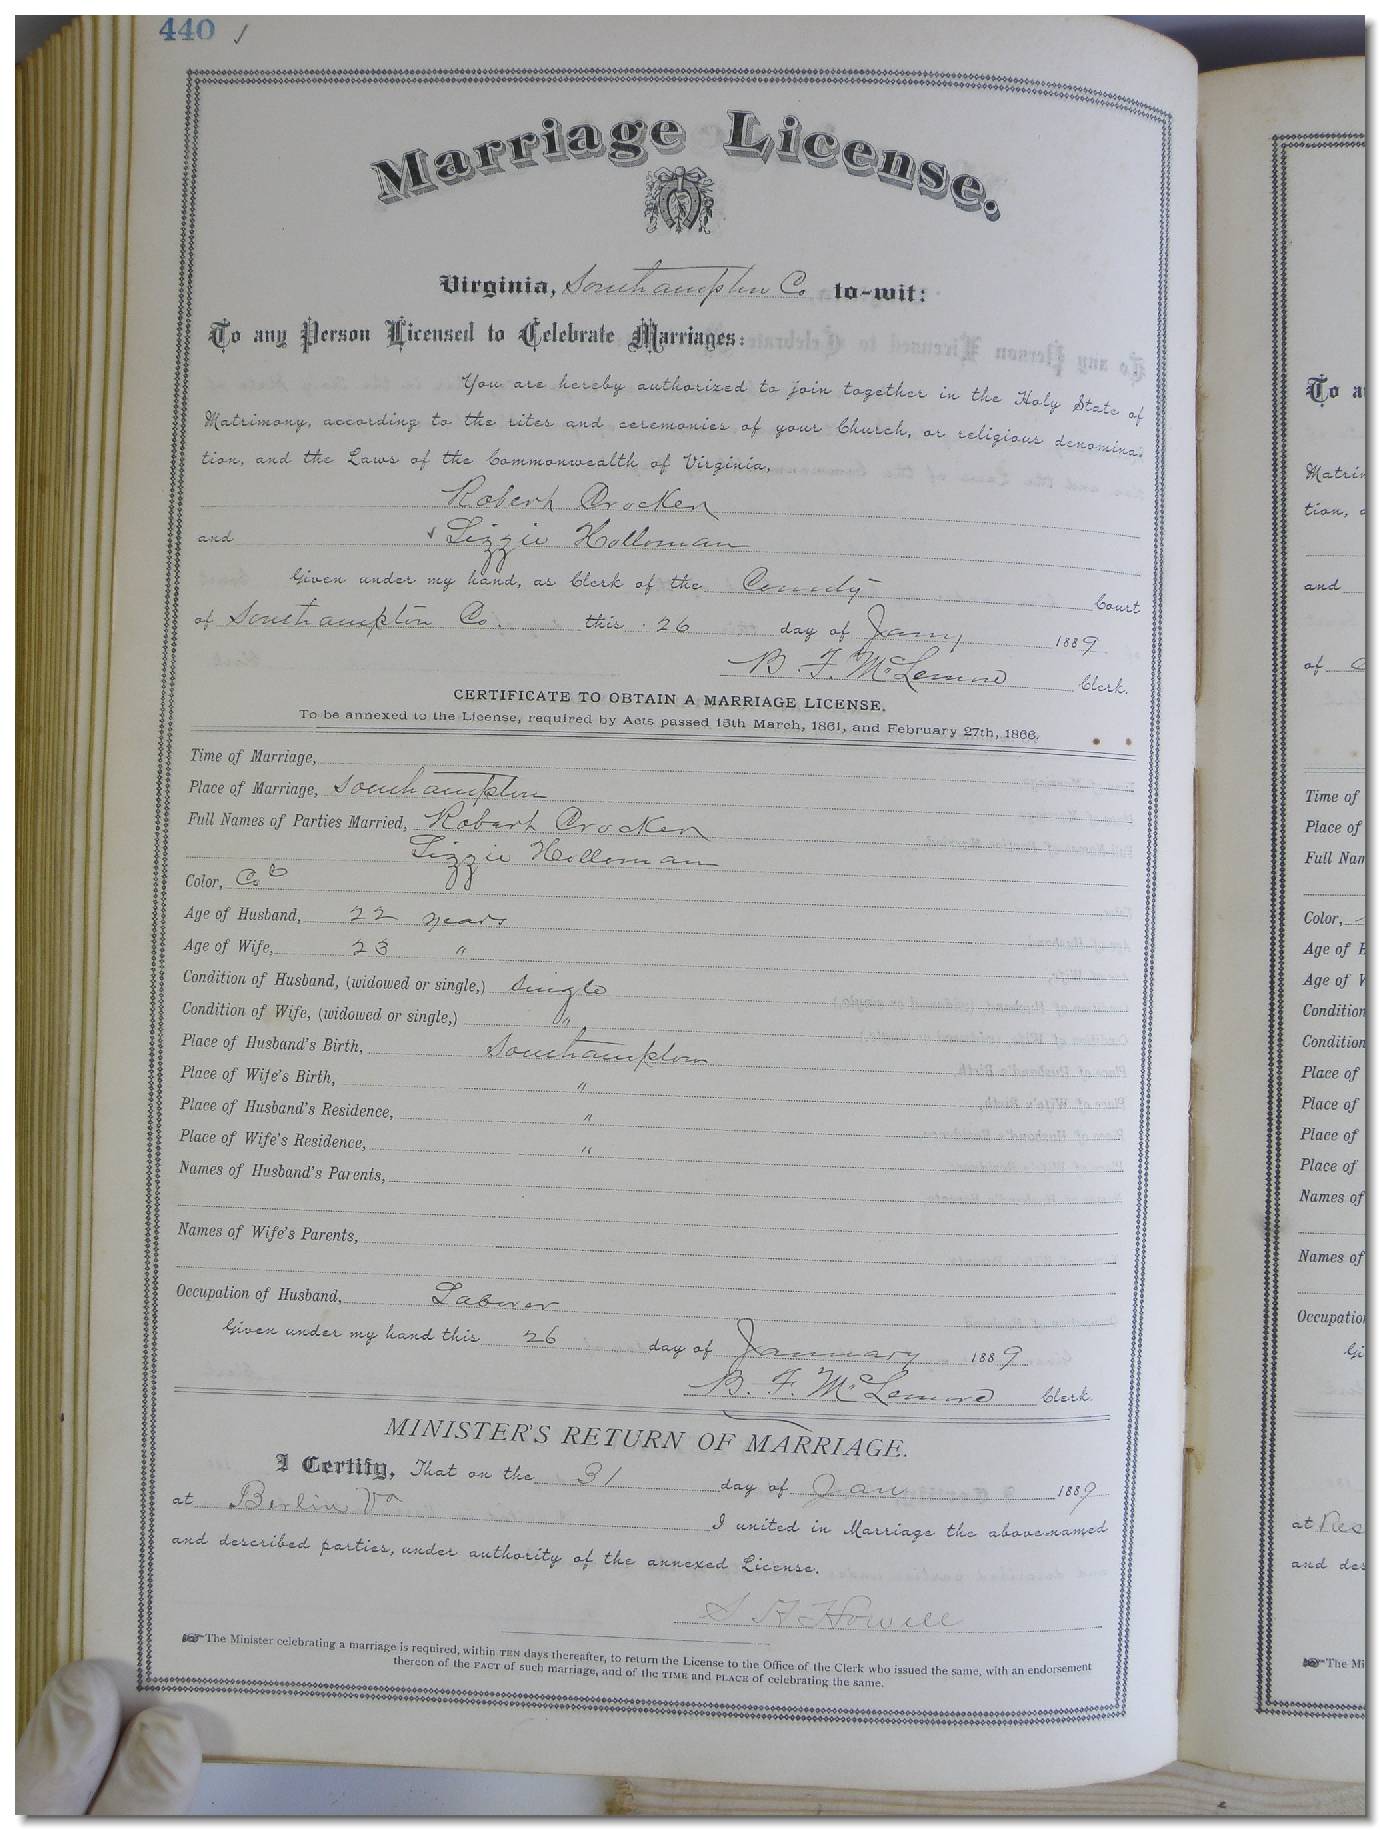 440
Marriage License.
Virginia, Southampton Co to-wit:
To any Person Licensed to Celebrate Marriages:
You are hereby authorized to join together in the Holy State of
Matrimony, according to the rites and ceremonies of your Church, or religious denomina-
tion, and the Laws of the Commonwealth of Virginia,
Robert Crocker
and Lizzie Holloman
Given under my hand, as Clerk of the County Court
of Southampton Co. this 26 day of Jany 1889
B. F. McLemore Clerk.
CERTIFICATE TO OBTAIN A MARRIAGE LICENSE.
To be annexed to the License, required by Acts passed 15th March, 1861, and February 27th, 1866.
Time of Marriage,
Place of Marriage, Southampton
Full Names of Parties Married, Robert Crocker
Lizzie Holloman
Color, Cod
Age of Husband, 22 years
Age of Wife, 23 "
Condition of Husband, (widowed or single,) single
Condition of Wife, (widowed or single,) "
Place of Husband's Birth, Southampton
Place of Wife's Birth, "
Place of Husband's Residence, "
Place of Wife's Residence, "
Names of Husband's Parents,
Names of Wife's Parents,
Occupation of Husband, Laborer
Given under my hand this 26 day of January 1889
B. F. McLemore Clerk.
MINISTER'S RETURN OF MARRIAGE.
I Certify, That on the 31 day of Jan 1889
at Berlin Va I united in Marriage the above-named
and described parties, under authority of the annexed License.
S H Howell
The Minister celebrating a marriage is required, within TEN days thereafter, to return the License to the Office of the Clerk who issued the same, with an endorsement
thereon of the FACT of such marriage, and of the TIME and PLACE of celebrating the same.
To a
Matrim
tion,
and
of
Time of
Place of
Full Nam
Color,
Age of H
Age of W
Condition
Condition
Place of
Place of
Place of
Place of
Names of
Names of
Occupatio
Gi
at Res
and des
The Mi